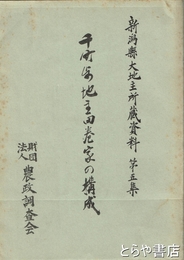 新潟縣大地主所藏資料 第五集
千町歩地主田巻家の構成
財団法人 農政調査会
とらや書店